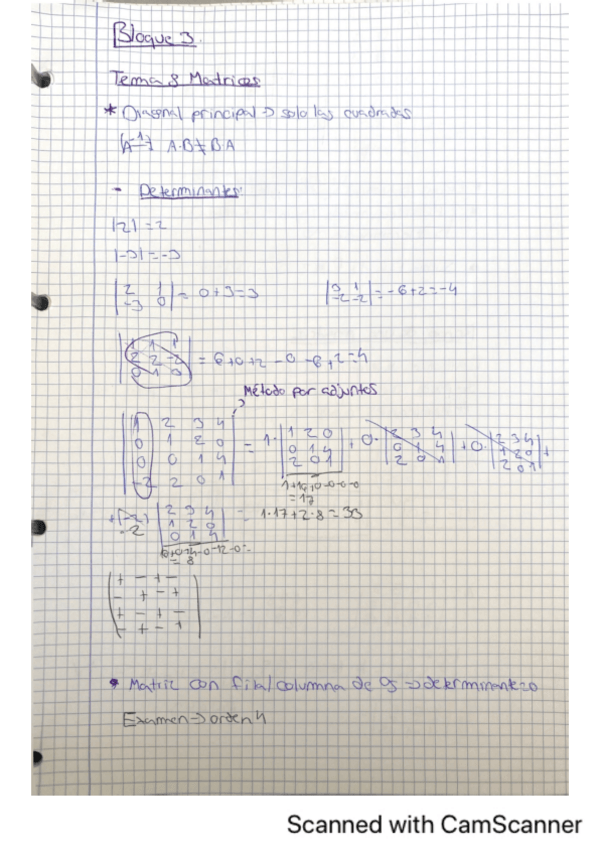 Bloque 3.
Tema 8 Matrices
* Diagonal principal → solo las cuadradas
A·B ≠ B·A
- Determinantes:
|2| = 2
|-3| = -3
|2 1| = 0+3=3
|-3 0|
|3 1| = -6+2=-4
|-2 -2|
|1 1 1|
|2 2 -2| = 6+0+2-0-6+2=4
|0 1 0|
Método por adjuntos
|1 2 3 4|
|0 1 2 0|
|0 0 1 4|
|-2 2 0 1|
= 1· |1 2 0| + 0· |2 3 4| + 0· |2 3 4| +
|0 1 4| |0 1 4| |1 2 0|
|2 0 1| |2 0 1| |2 0 1|
= 17
|2 3 4| = 1·17+2·8=33
|1 2 0|
|0 1 4|
= 8
+ - + -
- + - +
+ - + -
- + - +
* Matriz con fila/columna de 0s → determinante=0
Examen → orden 4
Scanned with CamScanner